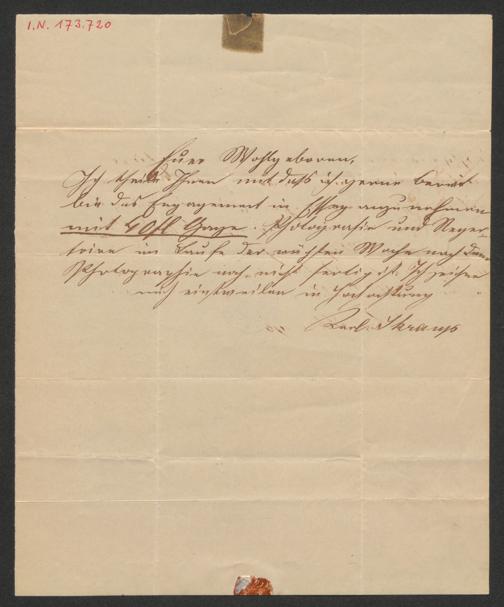 I.N. 173.720
Euer Wohlgeboren,
Ich theile Ihnen mit daß ich gerne bereit
bin das Engagement in anzunehmen
mit 40fl Gage. Photografie und Reper-
toire im Laufe der nächsten Woche nach
Photographie noch nicht fertig ist. Ich zeichne
mich einstweilen in Hochachtung
Karl Skraup